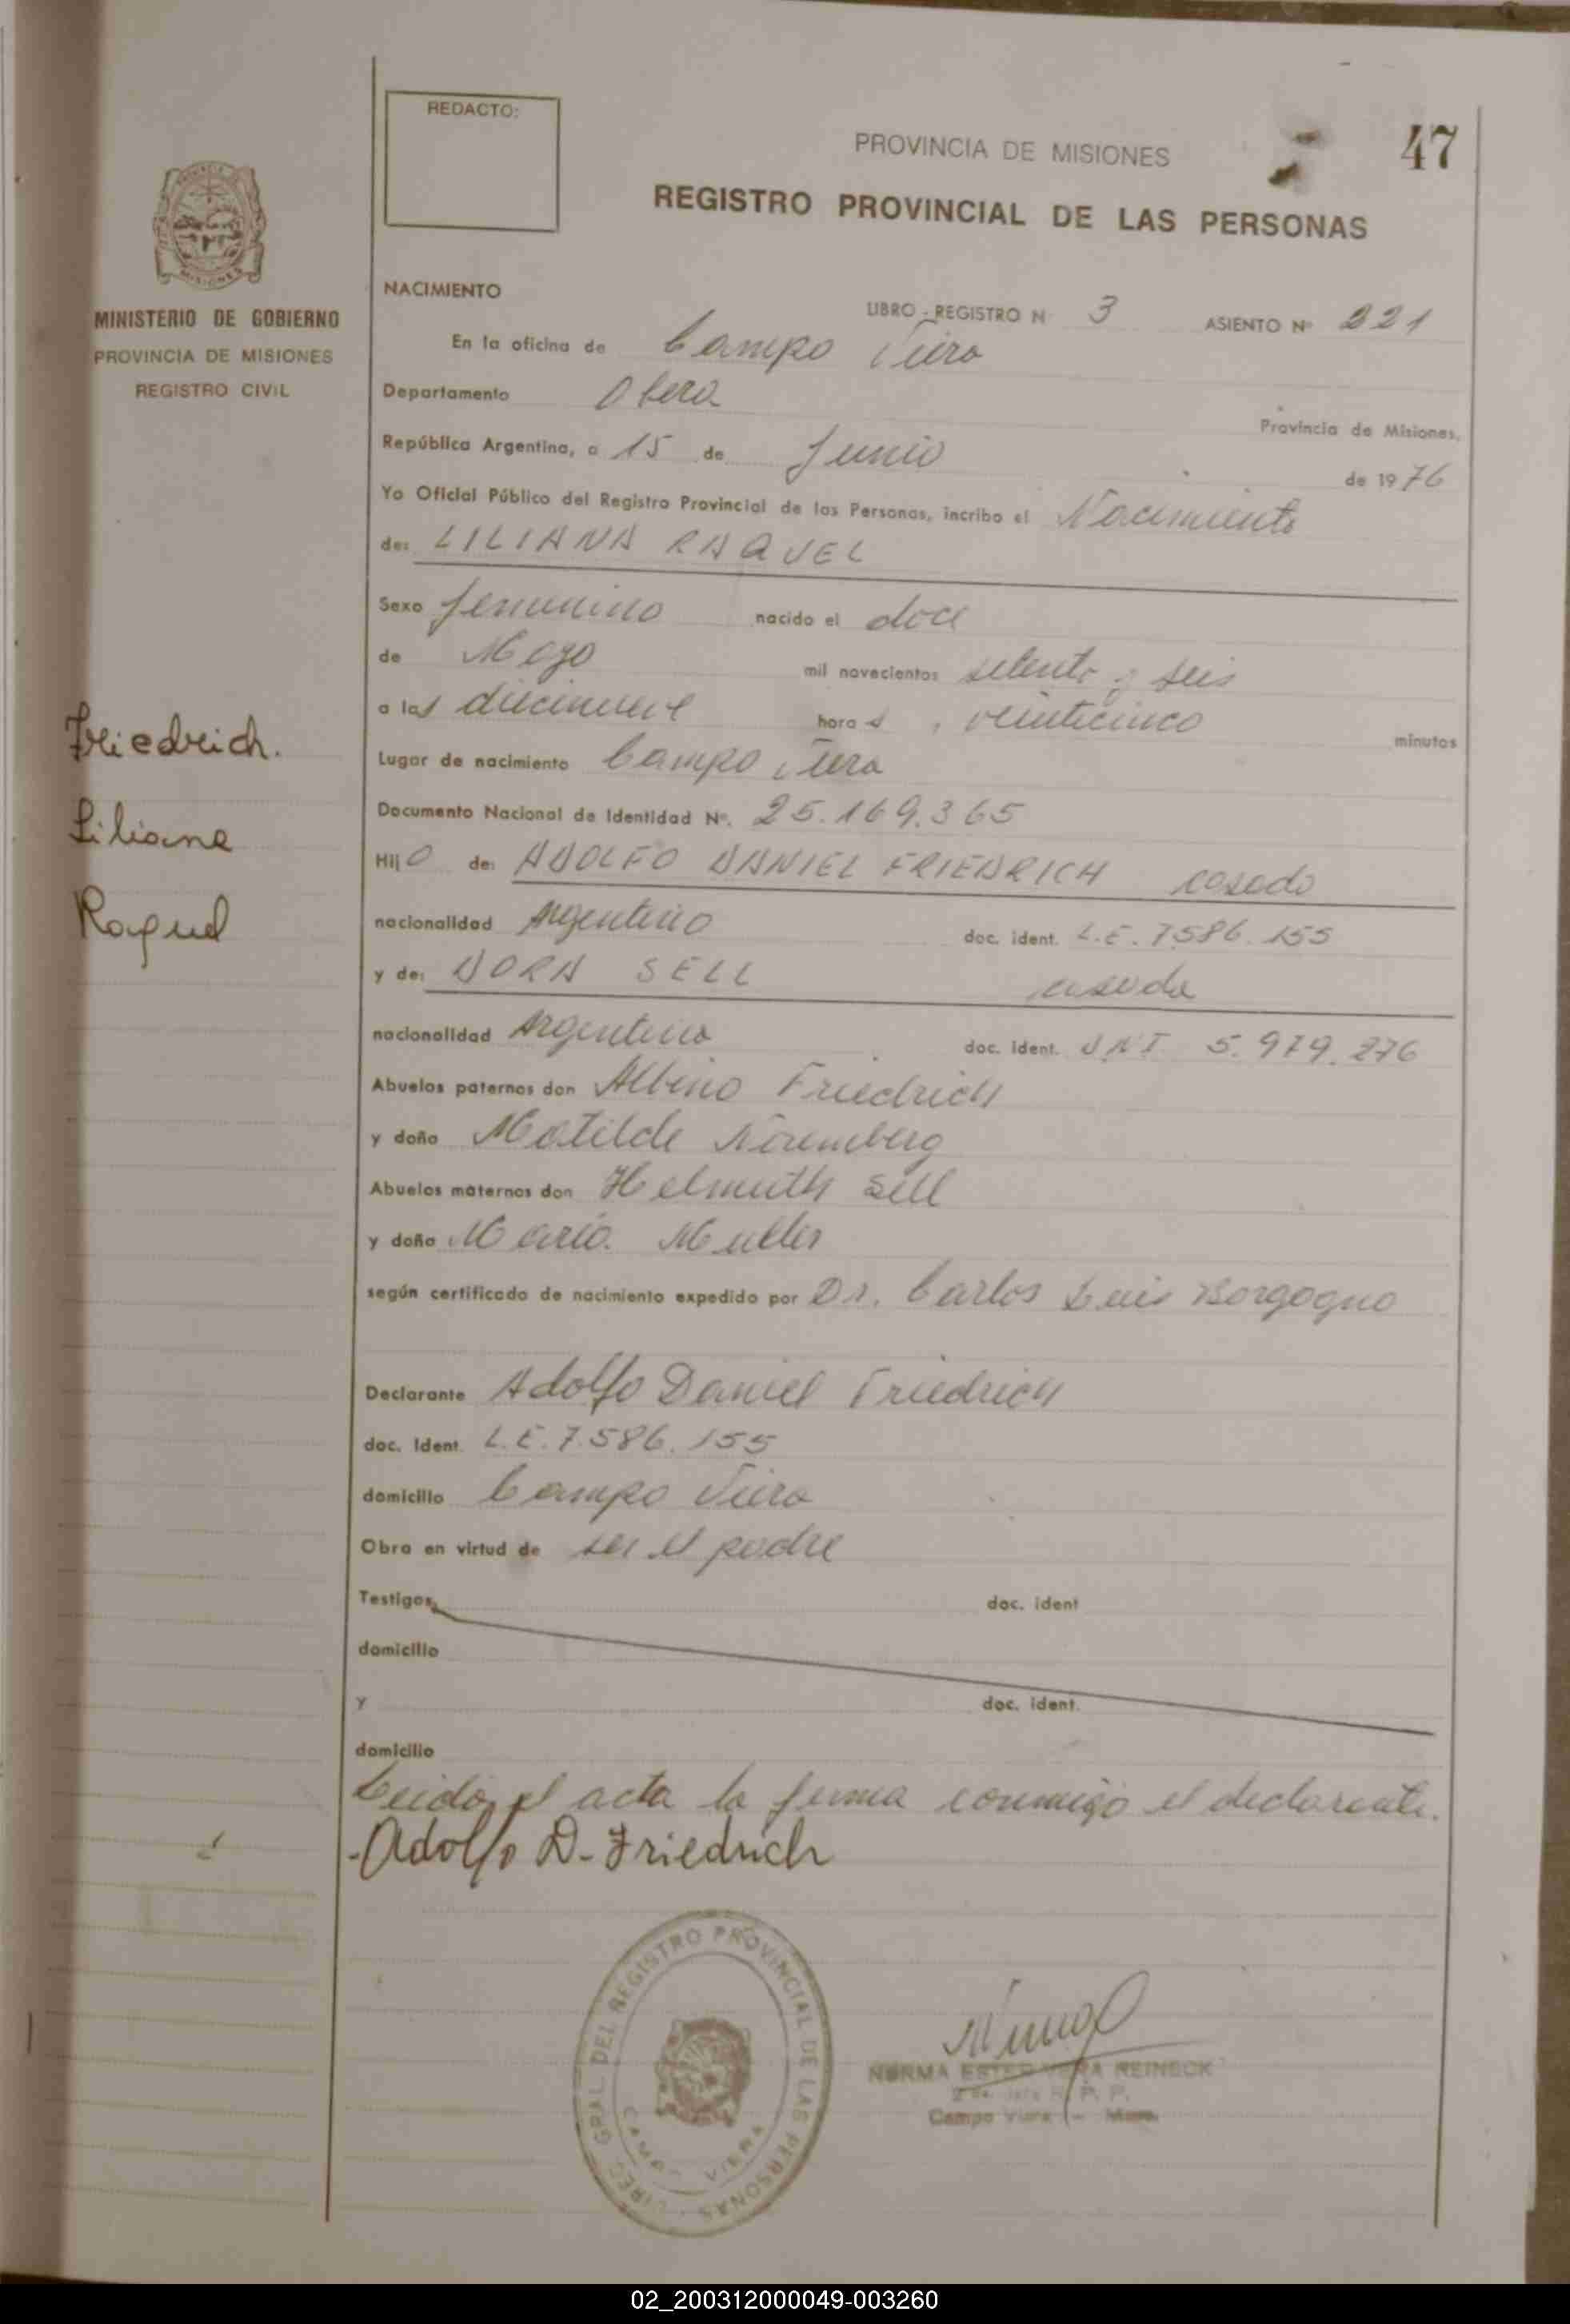 REDACTO:
47
PROVINCIA DE MISIONES
REGISTRO PROVINCIAL DE LAS PERSONAS
MINISTERIO DE GOBIERNO
PROVINCIA DE MISIONES
REGISTRO CIVIL
NACIMIENTO
LIBRO - REGISTRO N 3 ASIENTO Nº 221
En la oficina de Campo Viera
Departamento Obera
Provincia de Misiones,
República Argentina, a 15 de Junio de 1976
Yo Oficial Público del Registro Provincial de las Personas, incribo el Nacimiento
de: LILIANA RAQUEL
Sexo femenino nacido el doce
de Mayo mil novecientos setenta y seis
a las diecinueve horas, veinticinco minutos
Friedrich.
Liliana
Raquel
Lugar de nacimiento Campo Viera
Documento Nacional de Identidad Nº. 25.169.365
Hijo de: ADOLFO DANIEL FRIEDRICH casado
nacionalidad Argentino doc. ident. L.E. 7.586.155
y de: DORA SELL casada
nacionalidad Argentina doc. ident. D.N.I. 5.979.276
Abuelos paternos don Albino Friedrich
y doña Matilde Nöremberg
Abuelos maternos don Helmuth Sell
y doña Maria Muller
según certificado de nacimiento expedido por Dr. Carlos Luis Borgogno
Declarante Adolfo Daniel Friedrich
doc. Ident. L.E. 7.586.155
domicilio Campo Viera
Obra en virtud de ser el padre
Testigos doc. ident
domicilio
y doc. ident.
domicilio
Leida el acta la firma conmigo el declarante.
Adolfo D. Friedrich
DIREC. GRAL. DEL REGISTRO PROVINCIAL DE LAS PERSONAS
CAMPO VIERA
NORMA ESTER VERA REINECK
R. P. P.
Campo Viera - Mnes.
02_200312000049-003260